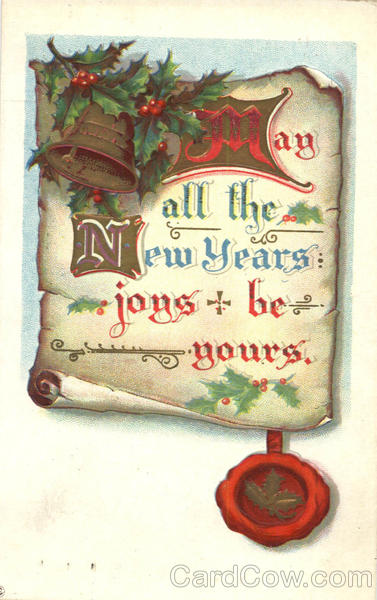 May
all the
New Years
joys be
yours.
CardCow.com